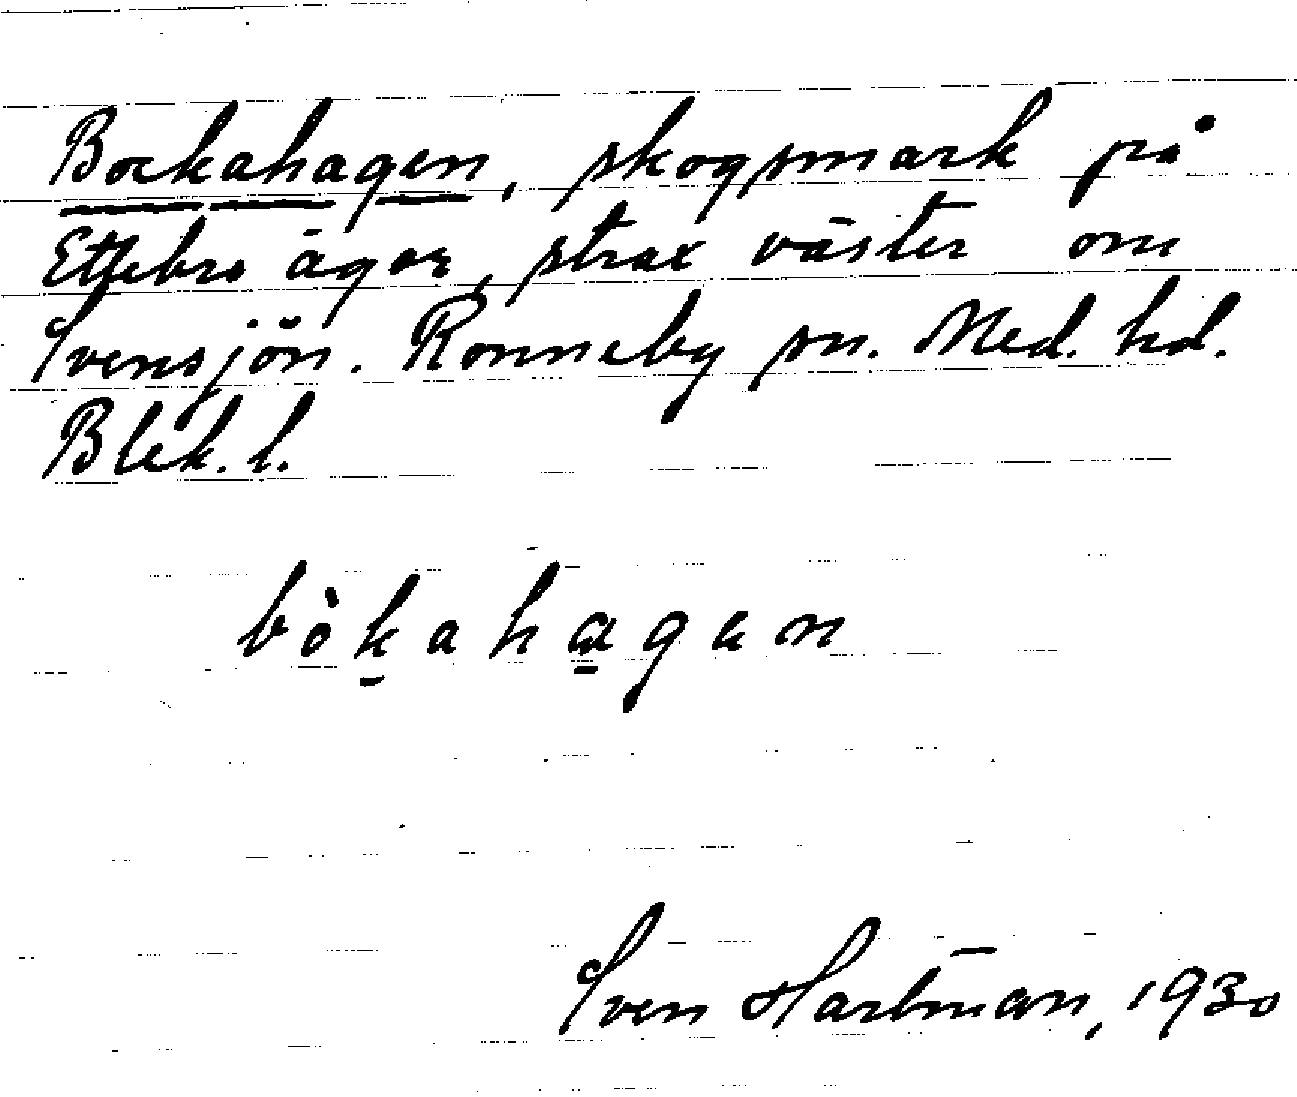 Bockahagen, skogsmark på
Ettebro ägor, strax väster om
Svensjön. Ronneby sn. Med. hd.
Blek. l.
bòk̠aha̠gen
Sven Hartman, 1930